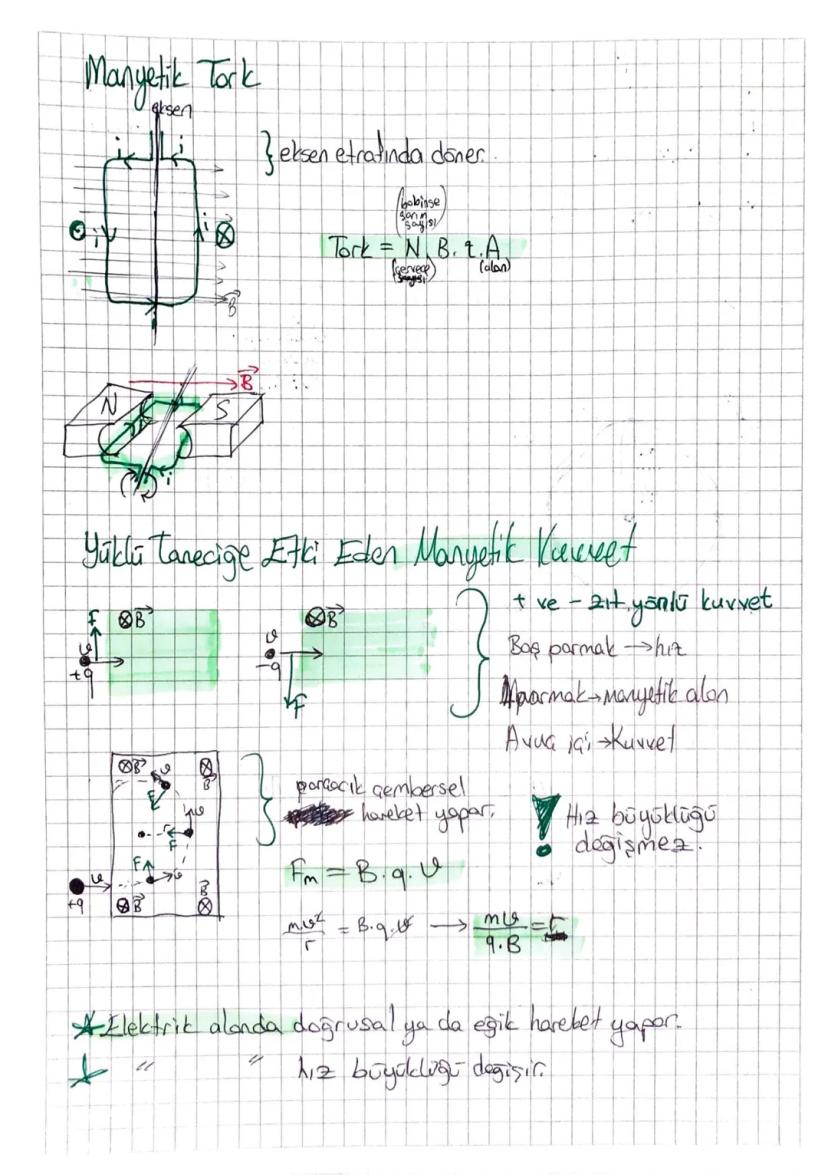 Manyetik Tork
eksen
i i
} eksen etrafında döner.
(bobinse sarım sayısı)
Tork = N. B. i. A
(çerçeve sayısı) (alan)
⊙ i i ⊗
B
B
N S
i
Yüklü Taneciğe Etki Eden Manyetik Kuvvet
F ⊗B ⊗B
+ ve - zıt yönlü kuvvet
υ υ
+q -q
Baş parmak → hız
4 parmak → manyetik alan
F
Avuç içi → Kuvvet
⊗B υ ⊗ B
F
parçacık çembersel
hareket yapar.
! Hız büyüklüğü
değişmez.
r υ
F
F υ
Fm = B. q. υ
+q υ
⊗B B ⊗
mυ²/r = B.q.υ → mυ/q.B = r
* Elektrik alanda doğrusal ya da eğik hareket yapar.
* " " hız büyüklüğü değişir.